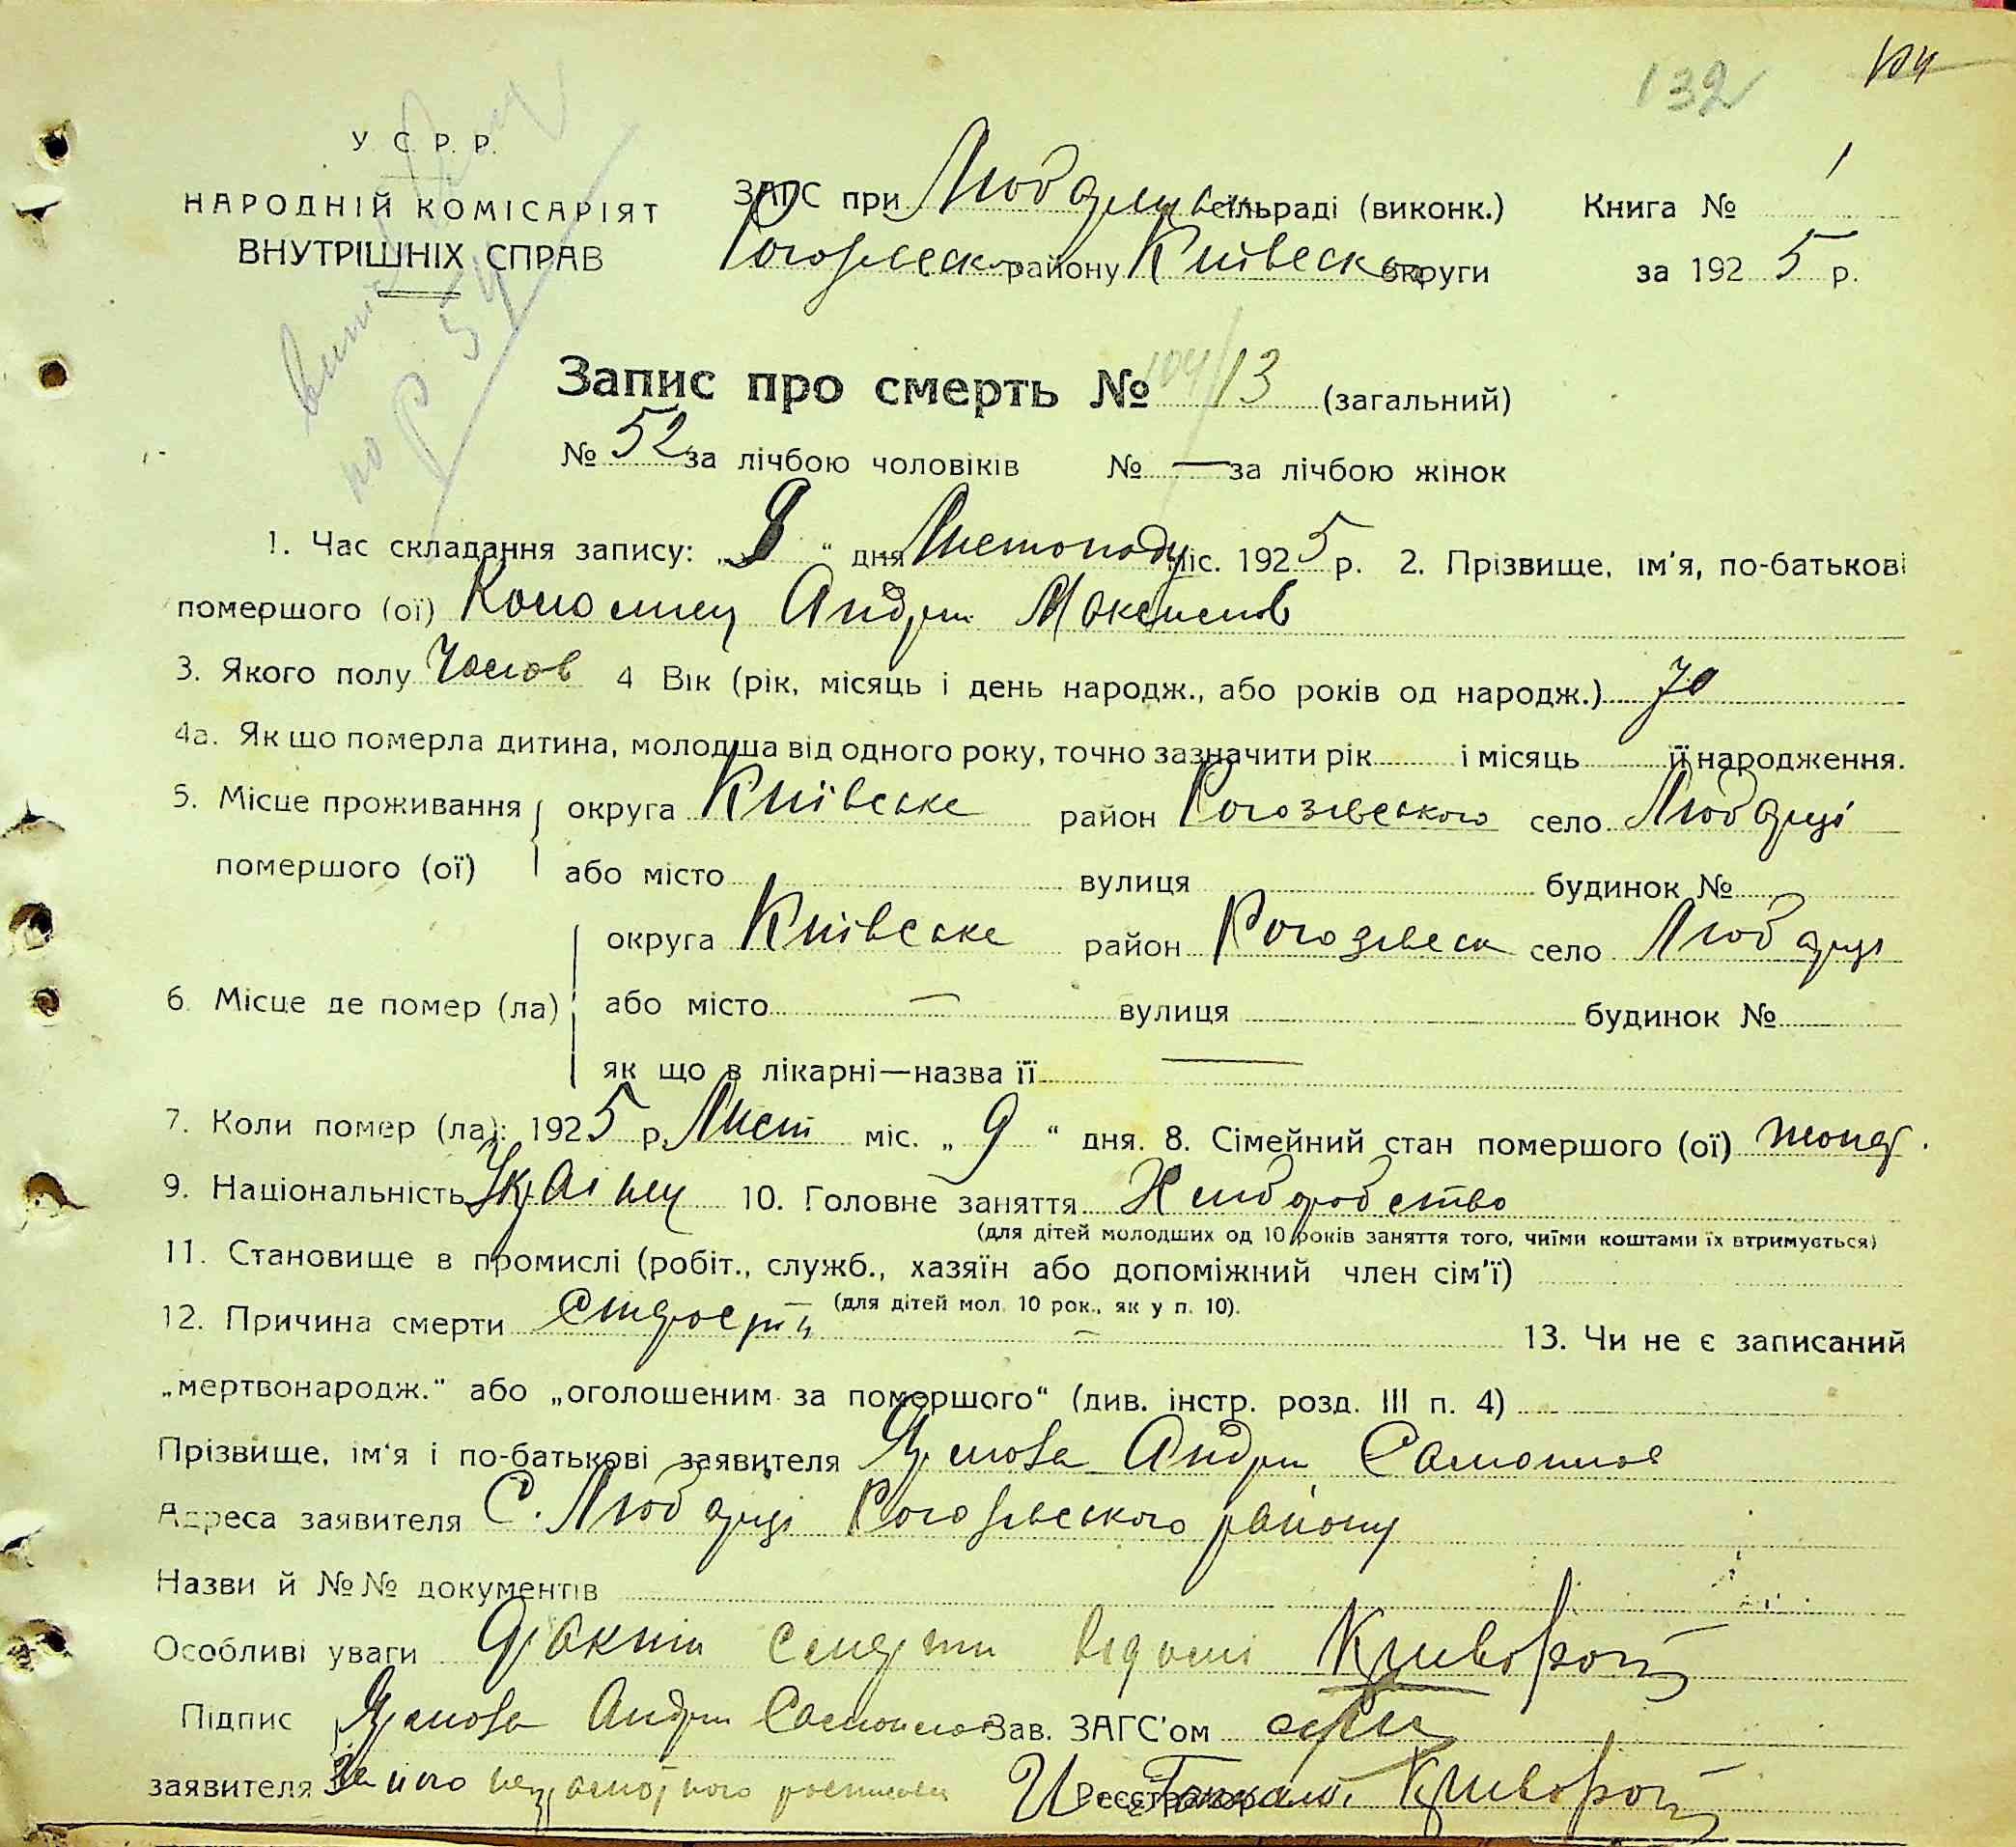 132 104
У. С. Р. Р.
НАРОДНІЙ КОМІСАРІЯТ
ВНУТРІШНІХ СПРАВ
ЗАГС при сільраді (виконк.) Книга № 1
району Київсько округи за 192 5 р.
Запис про смерть № 104/13 (загальний)
№ 52 за лічбою чоловіків № — за лічбою жінок
1. Час складання запису: „ 8 “ дня Листопаду міс. 192 5 р. 2. Прізвище, ім'я, по-батькові
помершого (ої) Коломиец Андрш Максимов
3. Якого полу Чолов 4 Вік (рік, місяць і день народж., або років од народж.) 70
4а. Як що померла дитина, молодша від одного року, точно зазначити рік і місяць її народження.
5. Місце проживання округа Київське район Рогозівського село Любарці
помершого (ої) або місто вулиця будинок №
округа Київське район Рогозівськ село Любарці
6. Місце де помер (ла) або місто — вулиця будинок №
як що в лікарні—назва її —
7. Коли помер (ла): 192 5 р. Лист міс. „ 9 “ дня. 8. Сімейний стан помершого (ої) жонат.
9. Національність Українец 10. Головне заняття Хлиборобство
(для дітей молодших од 10 років заняття того, чиїми коштами їх втримується)
11. Становище в промислі (робіт., служб., хазяїн або допоміжний член сім'ї)
(для дітей мол. 10 рок., як у п. 10).
12. Причина смерти 13. Чи не є записаний
„мертвонародж.“ або „оголошеним за помершого“ (див. інстр. розд. III п. 4)
Прізвище, ім'я і по-батькові заявителя Андрш
Адреса заявителя С. Любарці Рогозівського району
Назви й №№ документів
Особливі уваги смерти
Підпис Андрш Зав. ЗАГС'ом
заявителя За його Реєстратор